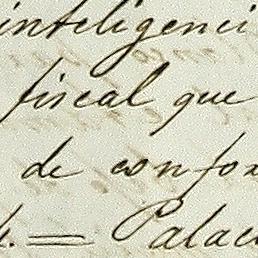 inteligenci
fiscal que
de confor
. = Palac